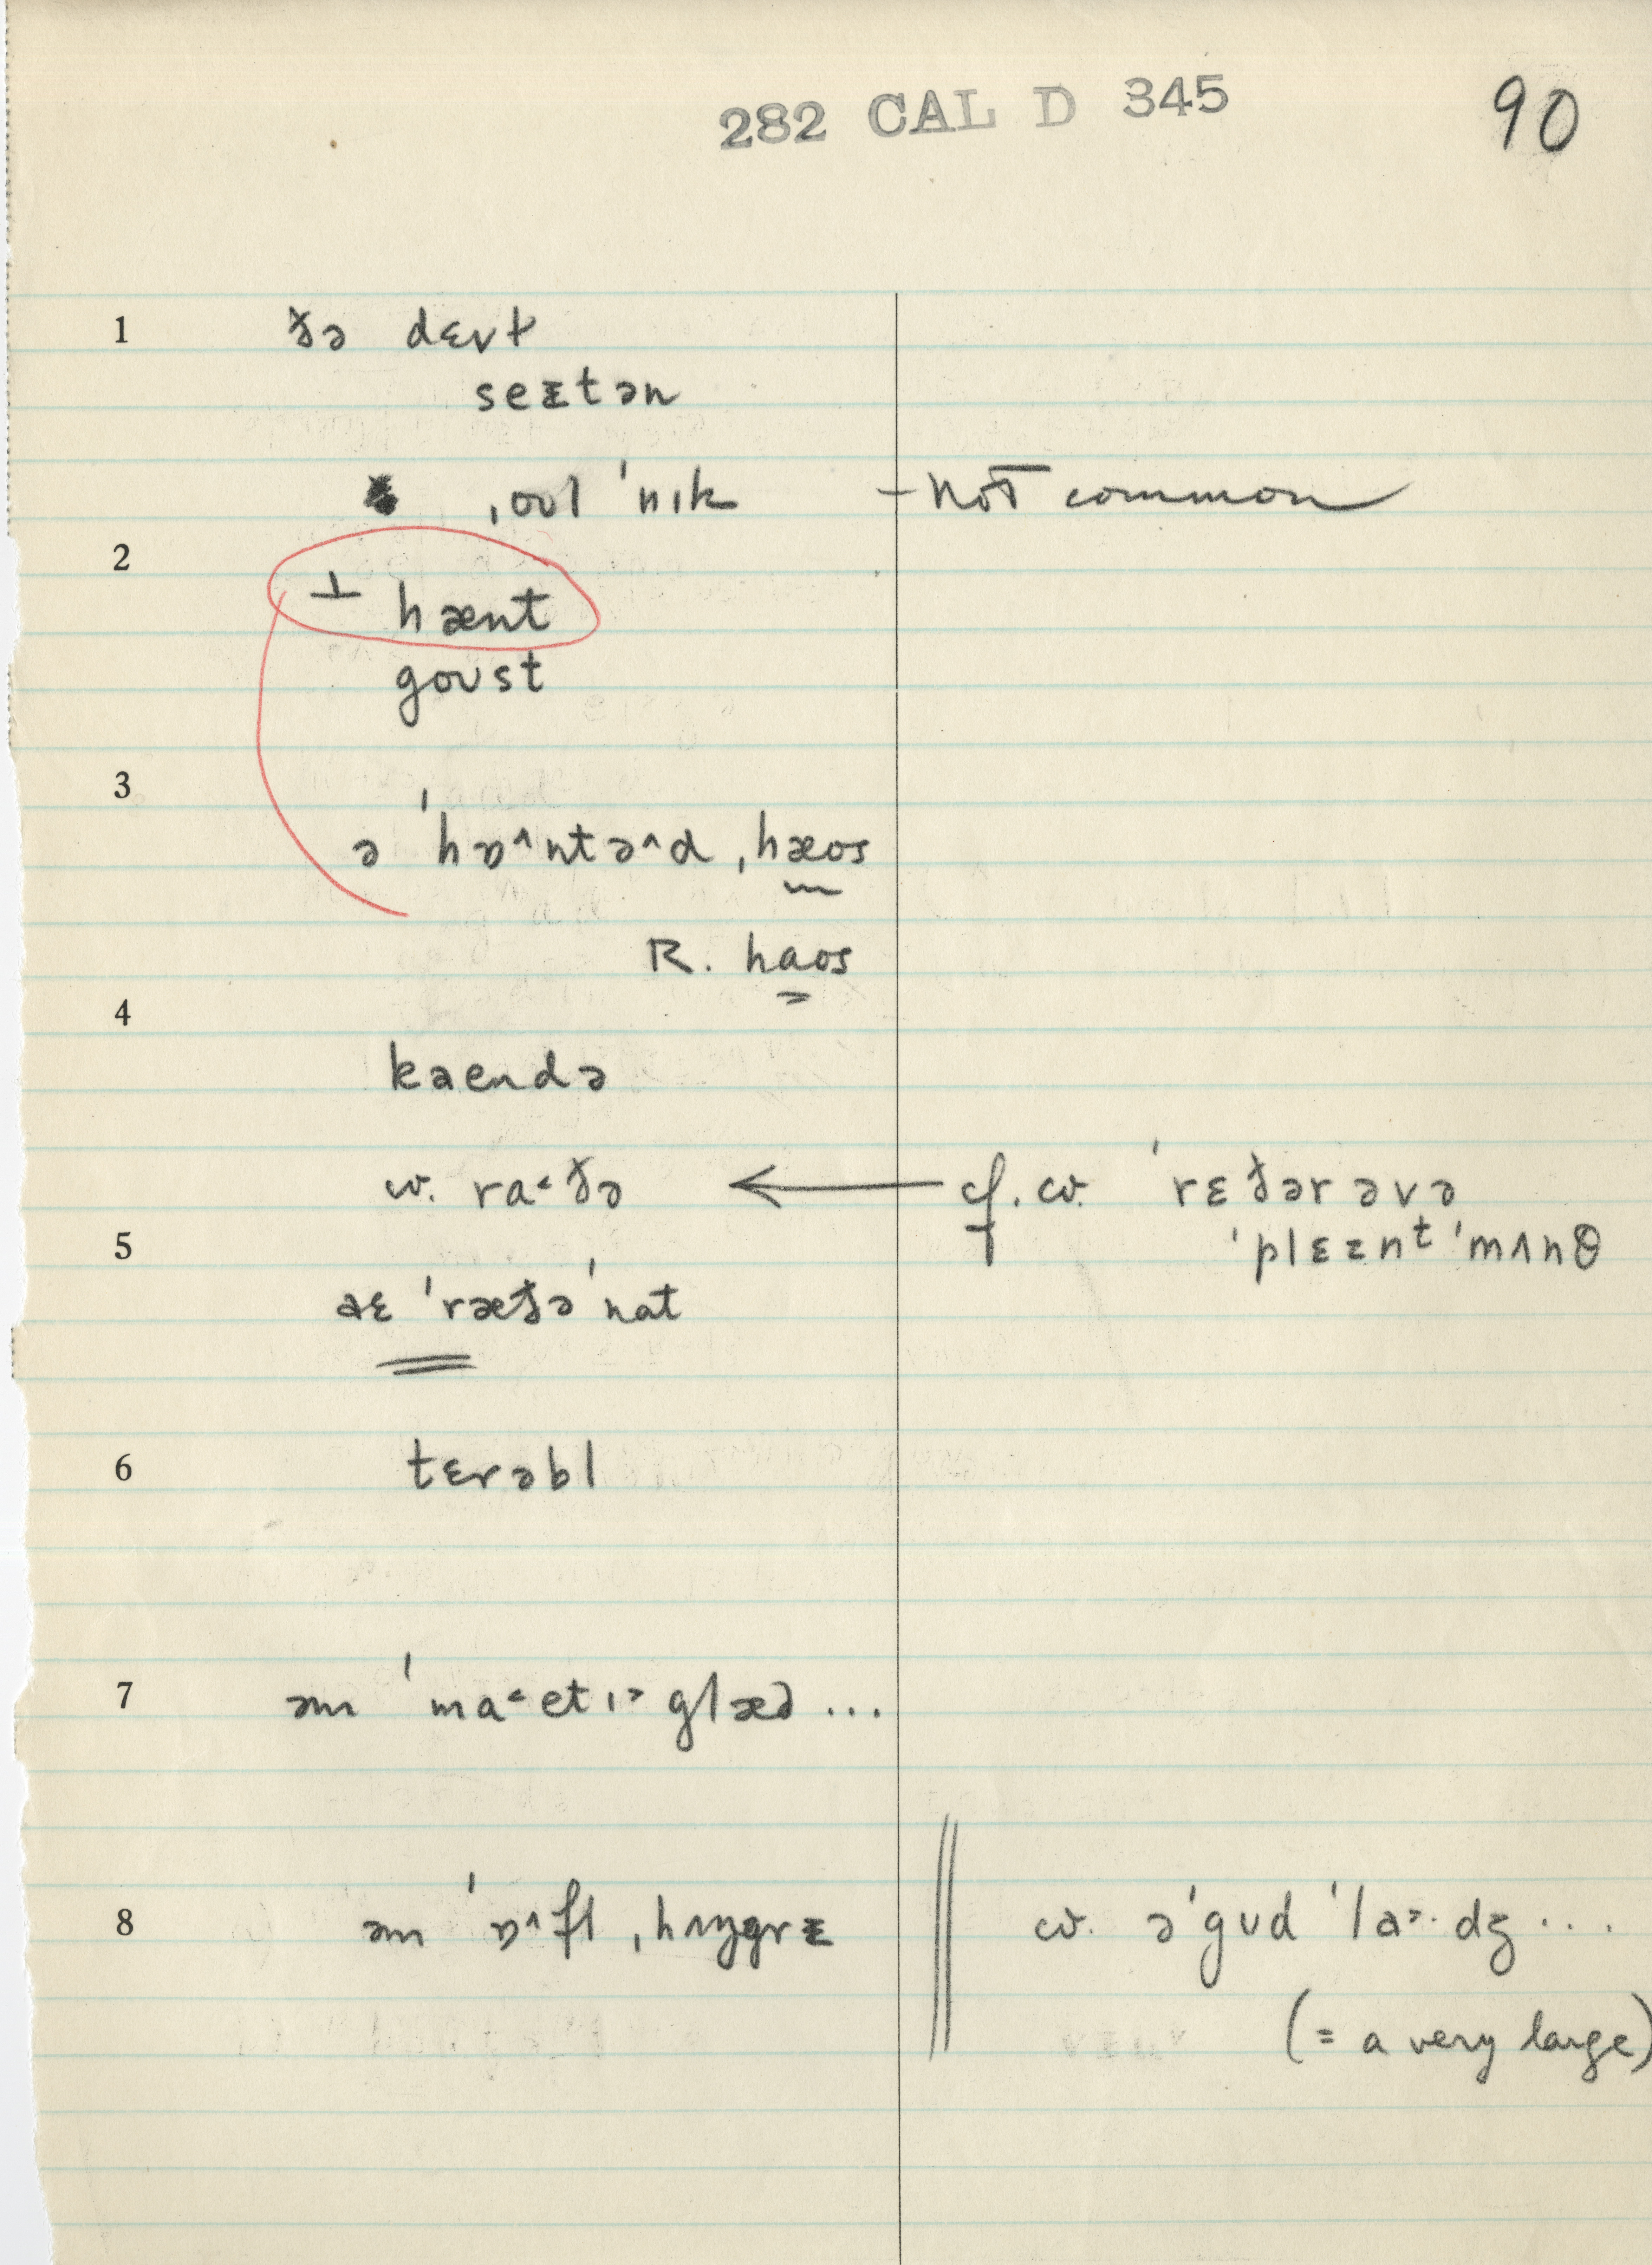 282 CAL D 345 90
1 ðə dɛvɫ
seᵻtən
ˌoʊl ˈnɪk – not common
2
⊥ hænt
goʊst
3
ə ˈhɒ^ntə^d ˌhæos
R. haos
4
kaendə
w. ra˂ðə ← cf. cv. ˈrɛðər əvə
5 ˈplɛznt ˈmʌnθ
aɛ ˈræðə ˈnat
6 tɛrəbl
7 əm ˈma˂etɪ˃ glæd ...
8 əm ˈɒ^fl ˌhʌŋgrᵻ cv. ə ˈgʊd ˈla˃·dʒ ....
(= a very large)